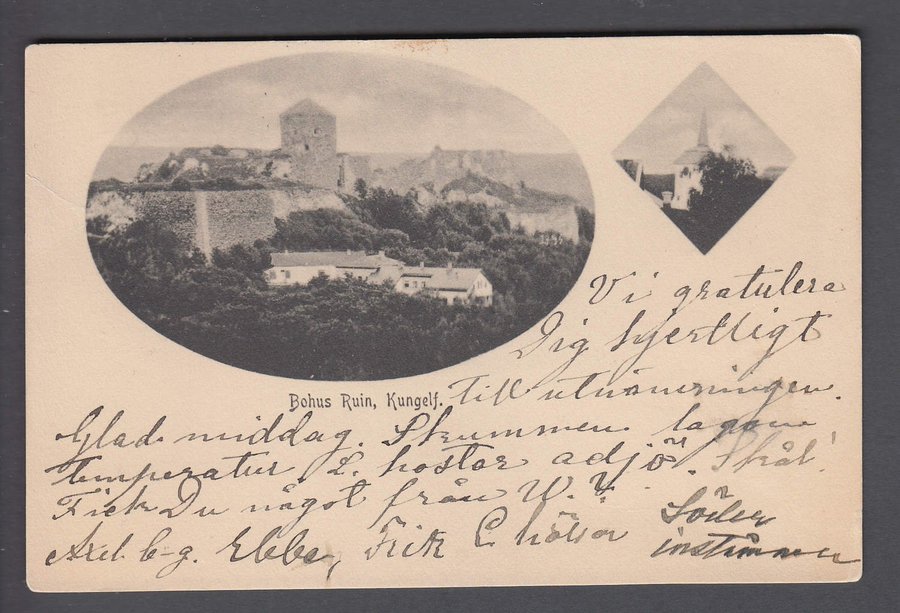 Vi gratulera
Dig hjertligt
Bohus Ruin, Kungelf.
Till utnämningen.
Glad middag. Skummen lagom
temperatur L. hostar adjö. Skål!
Fick Du något från W.?
Axel b-g. Ebba, Frik E. hälsar
Söder
instämmer